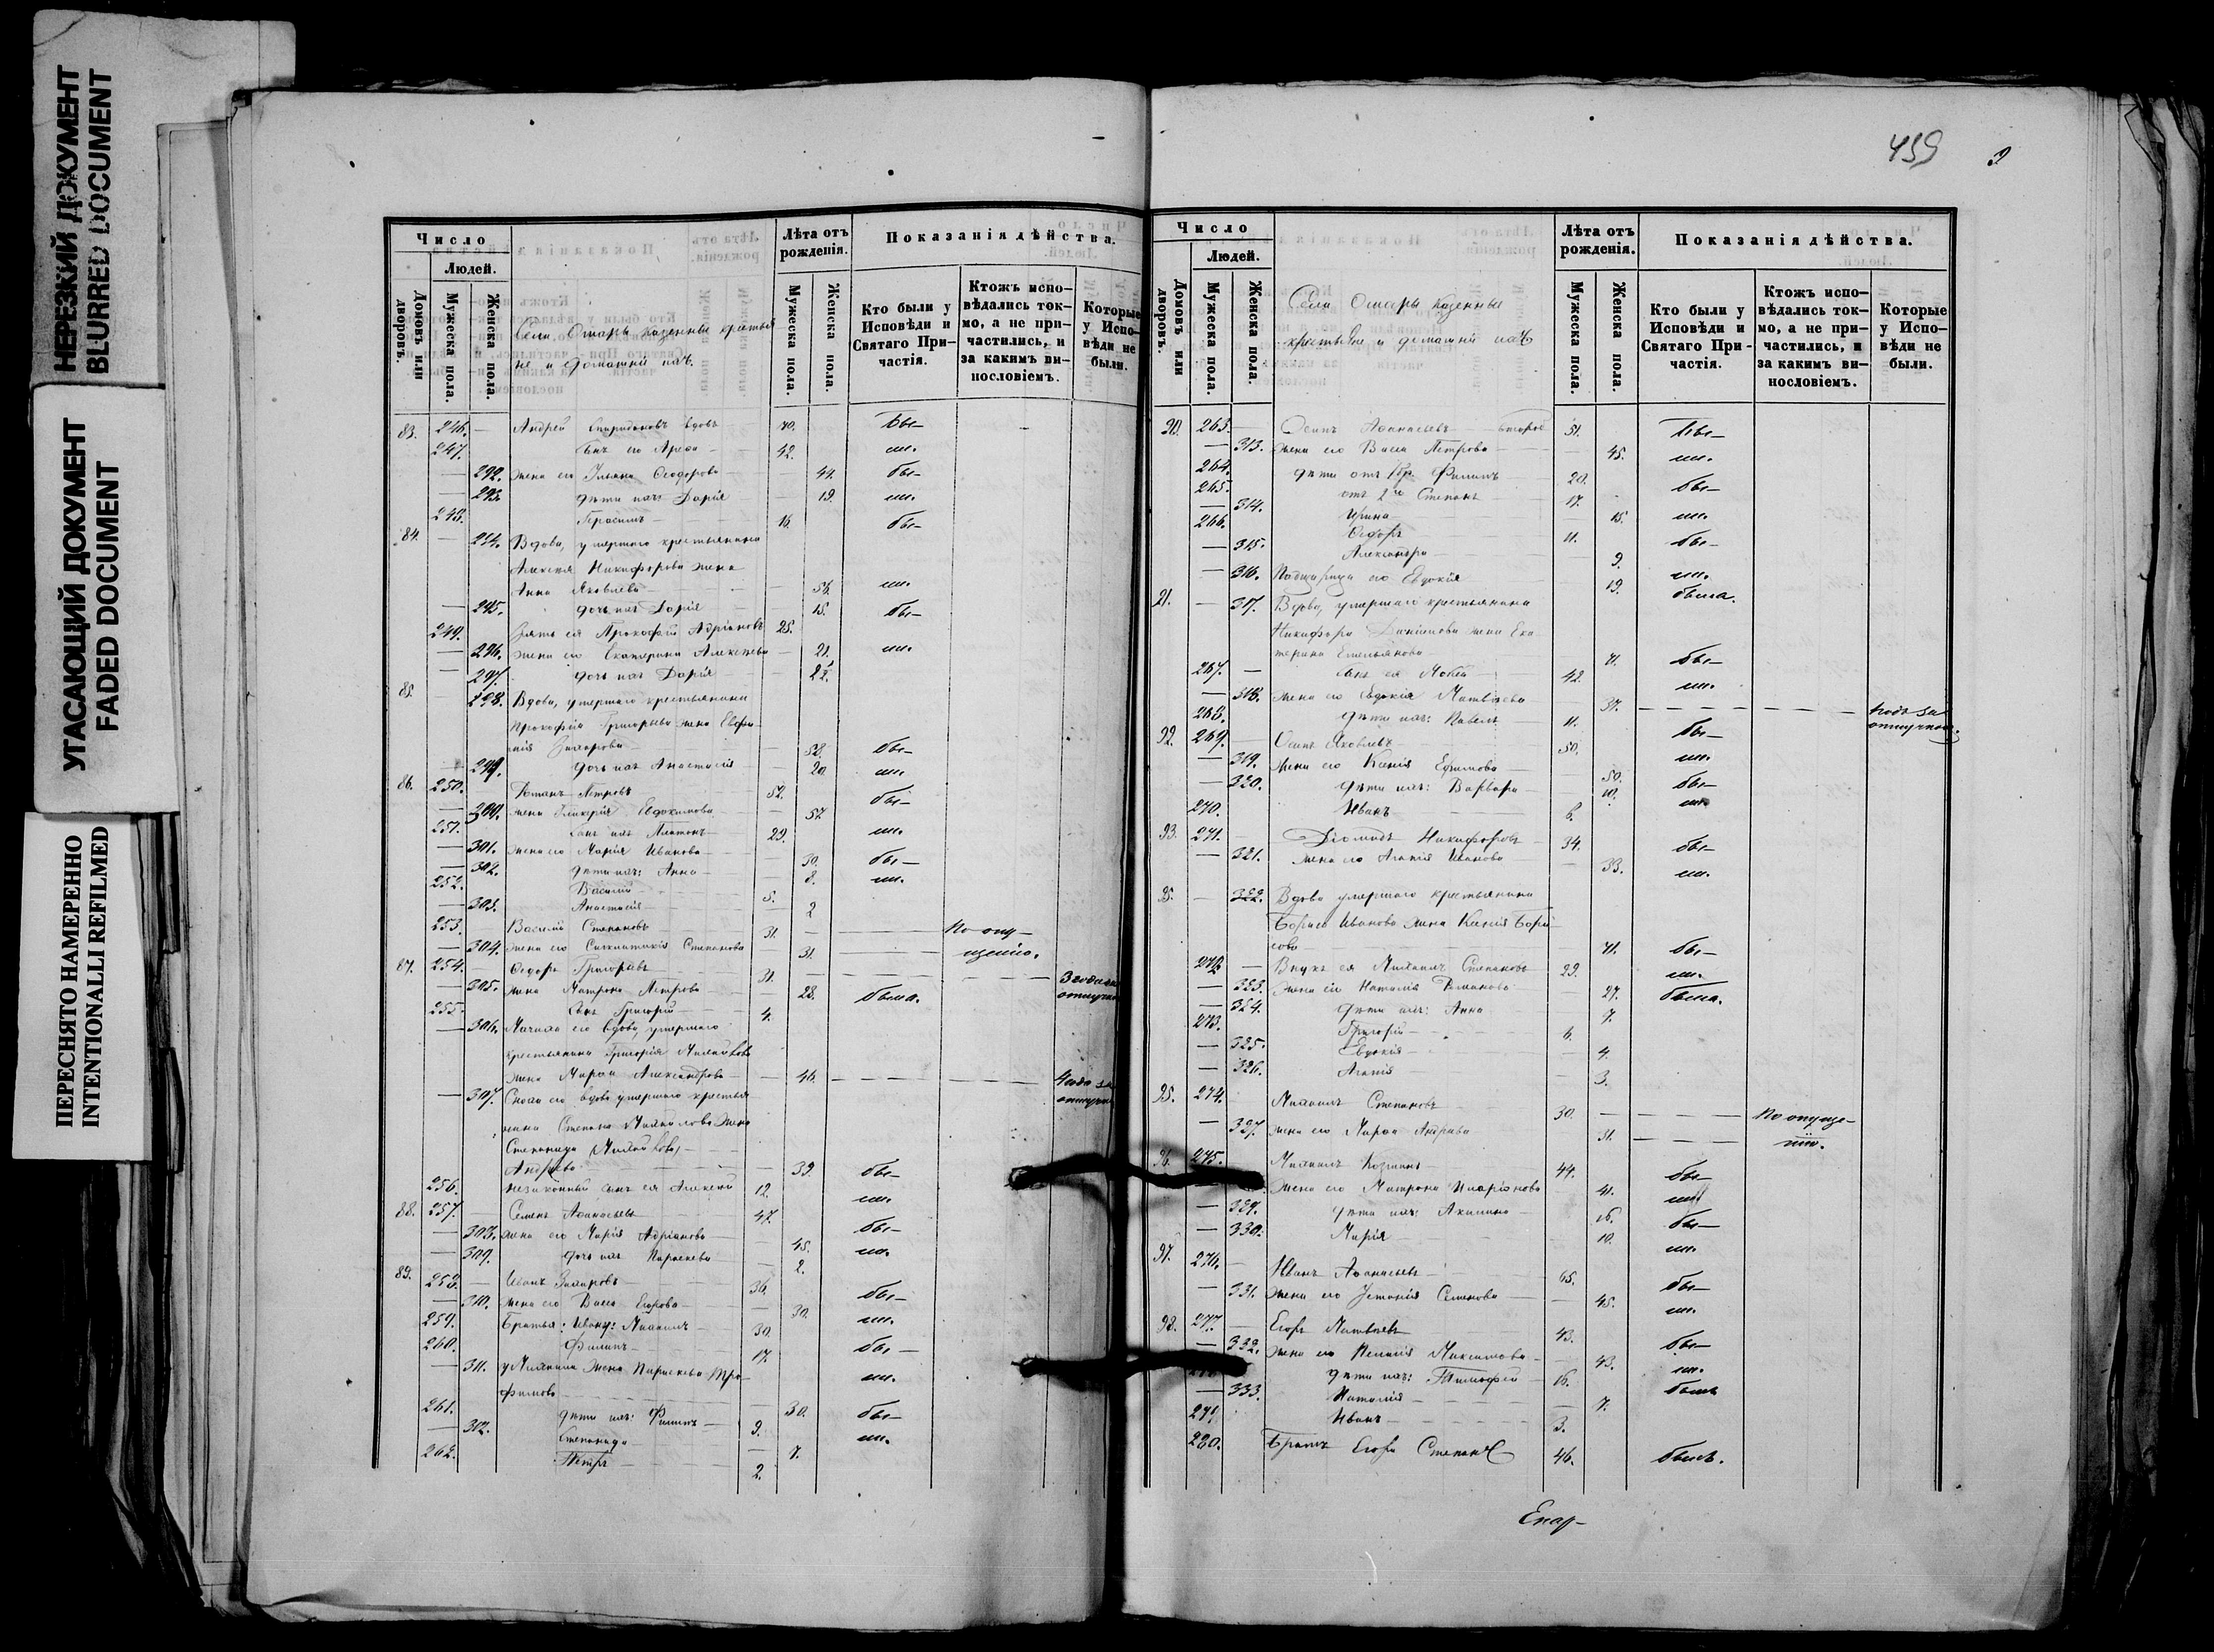 НЕРЕЗКИЙ ДОКУМЕНТ
BLURRED DOCUMENT
УГАСАЮЩИЙ ДОКУМЕНТ
FADED DOCUMENT
ПЕРЕСНЯТО НАМЕРЕННО
INTENTIONALLI REFILMED
Число
Людей.
Домовъ или дворовъ.
Мужеска пола.
Женска пола.
Села Омары казенные крестья
не и домашніи ихъ.
Лѣта отъ рожденія.
Мужеска пола.
Женска пола.
Показанія дѣйства.
Кто были у Исповѣди и Святаго Причастія.
Ктожъ испо-
вѣдались ток-
мо, а не при-
частились, и
за какимъ ви-
нословіемъ.
Которые
у Испо-
вѣди не
были.
83. 246. — Андрей Спиридоновъ вдовъ 70. бы-
247. Сынъ его Ареѳа 42. ли.
— 292. жена его Ульяна Ѳеодорова 44. бы-
— 293. дѣти ихъ Дарія 19. ли.
248. Герасимъ 16. бы-
84. — 294. Вдова, умершаго крестьянина
Алексѣя Никифорова жена
Анна Яковлева 54. ли.
— 295. дочь ихъ Дарія 15. бы-
249. Зять ея Прокофій Адріановъ 25.
— 296. жена его Екатерина Алексѣева 21. ли.
— 297. дочь ихъ Дарія
85. 298. Вдова, умершаго крестьянина
Прокофія Григорьева жена Евфи-
мія Захарова 58. бы-
299. дочь ихъ Анастасія 20. ли.
86. 250. Петровъ 57. бы-
— 300. жена Гликерія Евдокимова 57.
251. Сынъ ихъ Платонъ 29. ли.
— 301. жена его Марія Иванова 30. бы-
— 302. дѣти ихъ: Анна 8. ли.
252. Василій 5.
— 303. Анастасія 2
253. Василій Степановъ 31. По опу-
— 304. жена его Синклитикія Степанова 31. щенію.
87. 254. Ѳедоръ Григорьевъ 31. 3 года въ
— 305. жена Матрона Петрова 28. была. отлучкѣ
255. Сынъ Григорій 4.
— 306. Мачиха его вдова, умершаго
крестьянина Григорія Михайлова
жена Марѳа Александрова 46. 4 года въ
— 307. Сноха его вдова умершаго крестья отлучкѣ
нина Степана Михайлова жена
Степанида Михайлова,
Андреева 39. бы-
256. Незаконный сынъ ея Алексѣй 12. ли.
88. 257. Семенъ Аѳанасьевъ 47. бы-
— 308. жена его Марія Адріанова 45. ли.
— 309. дочь ихъ Параскева 2.
89. 258. — Иванъ Захаровъ 36. бы-
— 310. жена его Васса Егорова 30. ли.
259. Братья: Ивану: Михаилъ 30. бы-
260. Филипъ 17.
— 311. у Михаила жена Параскева Тро- ли.
фимова 30. бы-
261. дѣти ихъ: Филипъ 9. ли.
— 312. Степанида 7.
262. Петръ 2.
459
Число
Людей.
Домовъ или дворовъ.
Мужеска пола.
Женска пола.
Села Омары казенные
крестьяне и домашніи ихъ
Лѣта отъ рожденія.
Мужеска пола.
Женска пола.
Показанія дѣйства.
Кто были у Исповѣди и Святаго Причастія.
Ктожъ испо-
вѣдались ток-
мо, а не при-
частились, и
за какимъ ви-
нословіемъ.
Которые
у Испо-
вѣди не
были.
90. 263. Осипъ Аѳанасьевъ 51. бы-
— 313. жена его Васса Петрова 45. ли.
264. дѣти отъ 1бр. Филипъ 20. бы-
265. отъ 2го Степанъ 17.
— 314. Ирина 15. ли.
266. Ѳедоръ 11. бы-
— 315. Александра 9.
— 316. Падчерица его Евдокія 19. ли.
91. — 317. Вдова, умершаго крестьянина была.
Никифора Данилова жена Ека
терина Емельянова 71. бы-
267. — Сынъ ея 42. ли.
— 318. жена его Евдокія Матвѣева 37. года въ
268. дѣти ихъ: Павелъ 11. бы- отлучкѣ.
92. 269. Осипъ Яковлевъ 50. ли.
— 319. жена его Ксенія Ефимова 50. бы-
— 320. дѣти ихъ: Варвара 10. ли.
270. Иванъ 6.
93. 271. — Діомидъ Никифоровъ 34. бы-
— 321. жена его Агапія Иванова 33. ли.
— 322. Вдова умершаго крестьянина
Бориса Иванова жена Ксенія Бори
сова 71. бы-
272. Внукъ ея Михаилъ Степановъ 29. ли.
— 323. жена его Наталія Романова 27. была.
— 324. дѣти ихъ: Анна 7.
273. Григорій 6.
— 325. Евдокія 4.
— 326. Агапія 3.
95. 274. Михаилъ Степановъ 30. По опуще-
— 327. жена его Марѳа Андреева 31. нію.
96. 275. Михаилъ Козминъ 44. бы-
жена его Матрона Иларіонова 41. ли
— 329. дѣти ихъ: Акилина 16. бы-
— 330. Марія 10. ли.
97. 276. — Иванъ Аѳанасьевъ 65. бы-
— 331. жена его Устинія Семенова 45. ли.
98. 277. — Егоръ Матвѣевъ 43. бы-
— 332. жена его Пелагія Максимова 43. ли.
дѣти ихъ: Тимофей 16. былъ
— 333. Наталія 7.
279 Иванъ 3.
280. Братъ Егора Степанъ 46. былъ.
Епар-